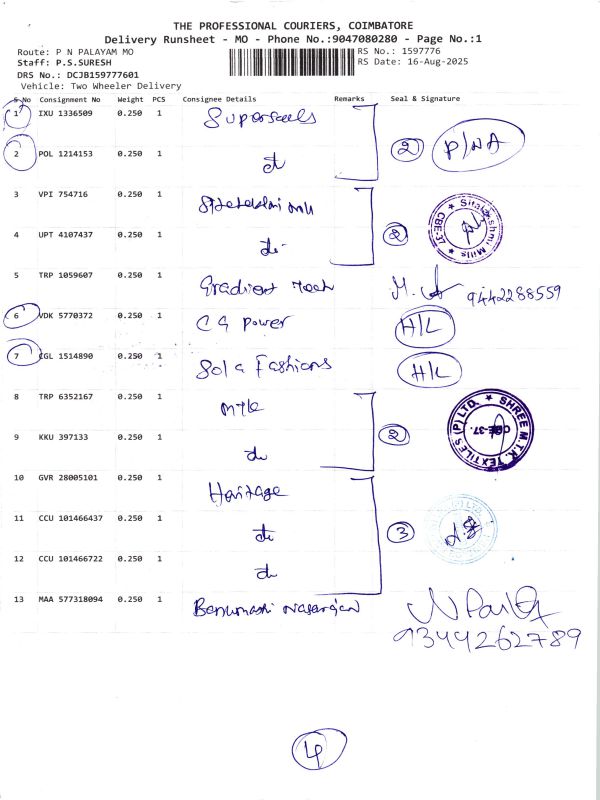 THE PROFESSIONAL COURIERS, COIMBATORE
Delivery Runsheet - MO - Phone No.:9047080280 - Page No.:1
Route: P N PALAYAM MO
RS No.: 1597776
Staff: P.S.SURESH
RS Date: 16-Aug-2025
DRS No.: DCJB159777601
Vehicle: Two Wheeler Delivery
S No Consignment No Weight PCS Consignee Details Remarks Seal & Signature
1 IXU 1336509 0.250 1 Superseals
2 POL 1214153 0.250 1 do 2 P/NA
3 VPI 754716 0.250 1
4 UPT 4107437 0.250 1 do 2
Sitalakshmi Mills CBE-37
5 TRP 1059607 0.250 1 Gradient Tech 9442288559
6 VDK 5770372 0.250 1 CG Power H/L
7 CGL 1514890 0.250 1 Sola Fashions H/L
8 TRP 6352167 0.250 1 MTK
9 KKU 397133 0.250 1 do 2
SHREE M.T.K. TEXTILES (P) LTD. CBE-37.
10 GVR 28005101 0.250 1 Heritage
11 CCU 101466437 0.250 1 do 3
12 CCU 101466722 0.250 1 do
13 MAA 577318094 0.250 1
9344262789
4